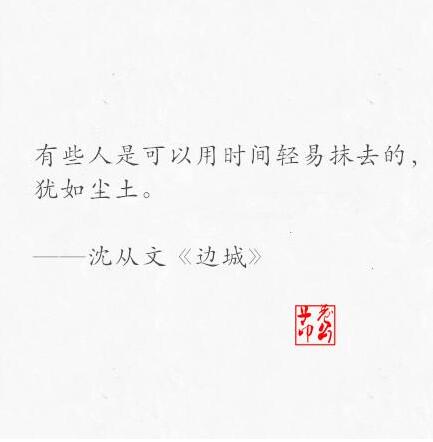 有些人是可以用时间轻易抹去的，
犹如尘土。
——沈从文《边城》